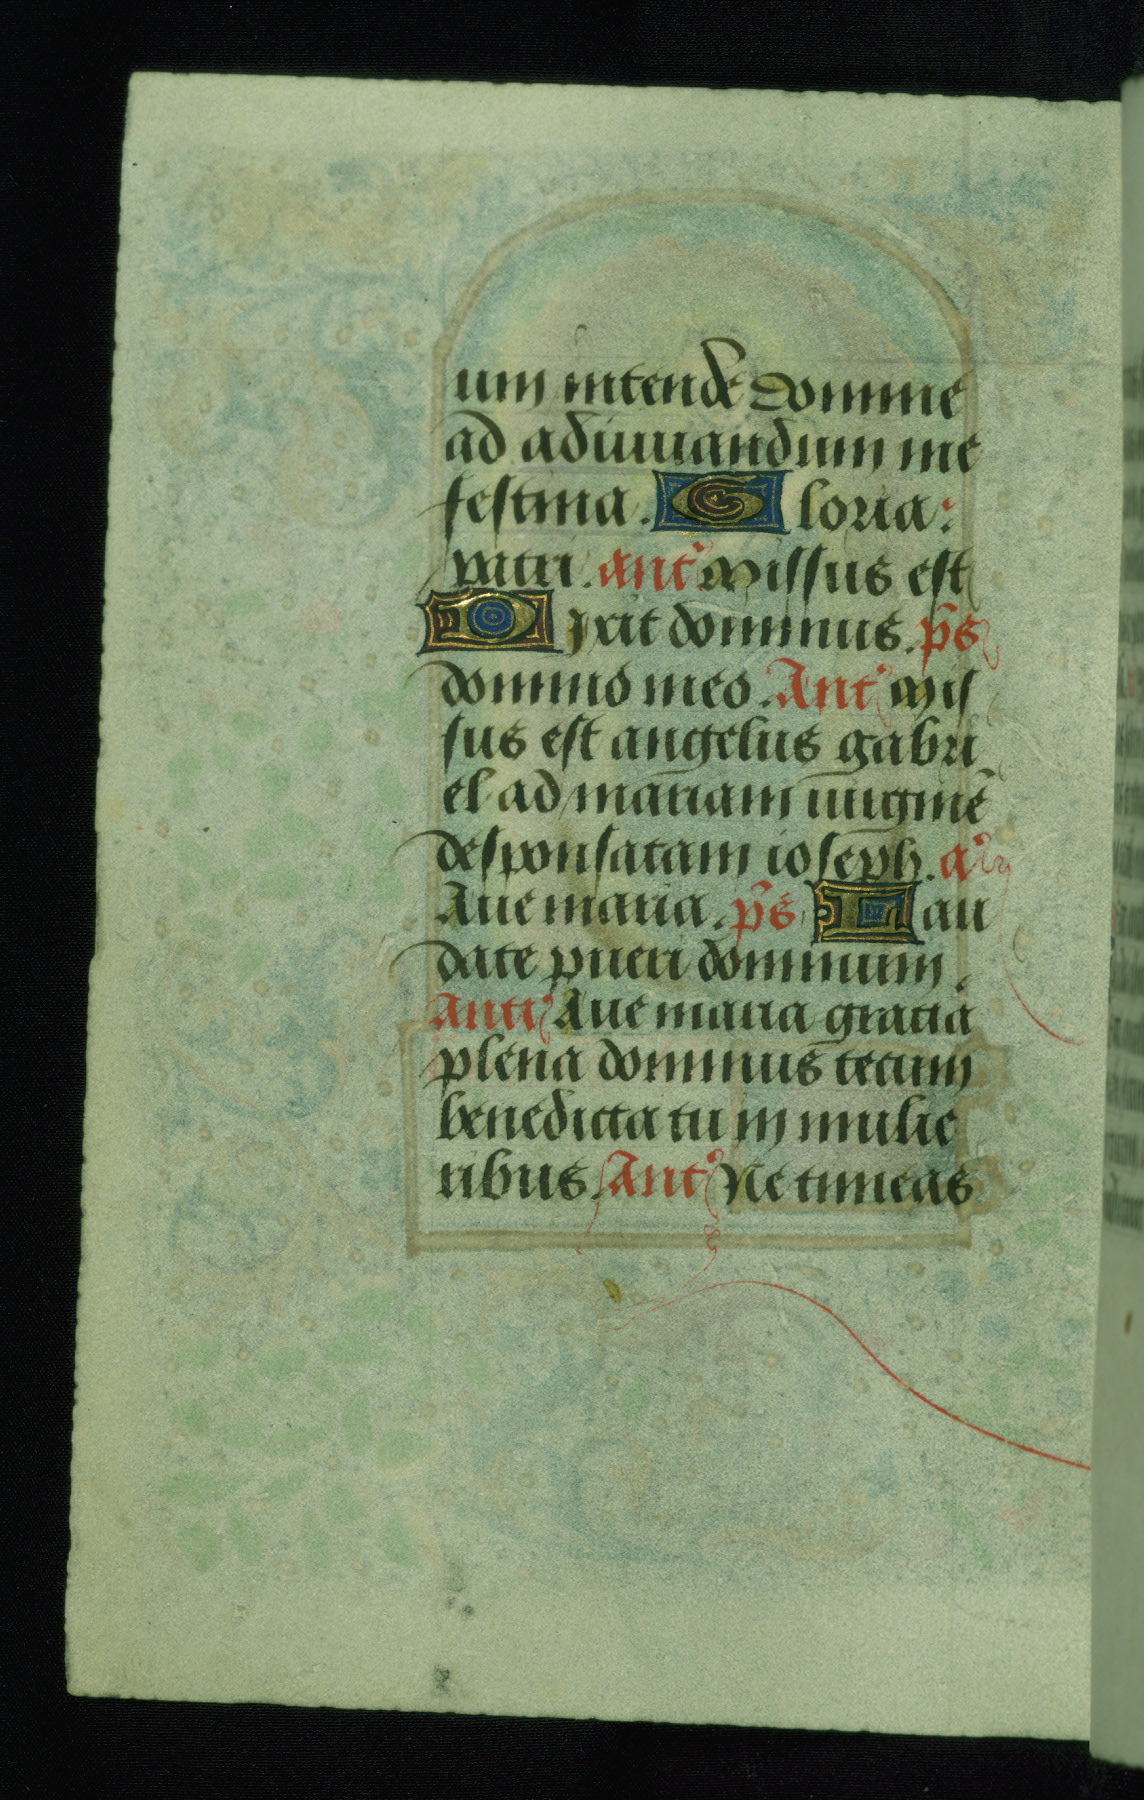 um intende domine
ad adiuuandum me
festina. Gloria:
patri. ant' Missus est
Dixit dominus. ps̄
domino meo. Ant' Mis
sus est angelus gabri
el ad mariam uirginē
desponsatam ioseph. a'
Aue maria. ps̄ Lau
date pueri dominum.
Anti' Aue maria gracia
plena dominus tecum
benedicta tu in mulie
ribus. Ant' Ne timeas